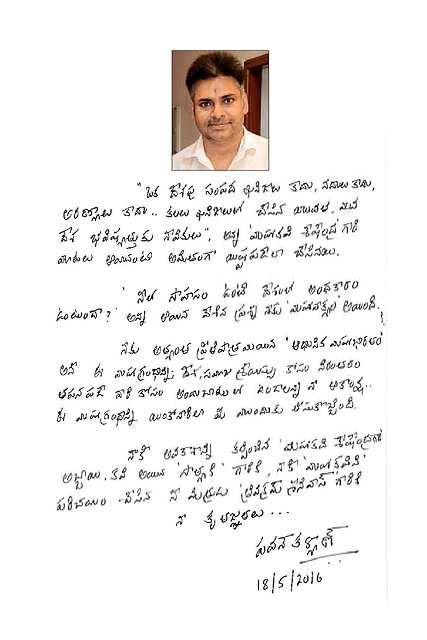 "ఒక దేశపు సంపద ఖనిజాలు కాదు, నదులు కాదు,
అరణ్యాలు కాదు.. కలలు ఖనిజాలతో చేసిన యువత, మన
దేశ భవిష్యత్తుకు నావికులు", అన్న 'మహాకవి శేషేంద్ర' గారి
మాటలు
'నీలో సాహసం ఉంటే దేశంలో అంధకారం
ఉంటుందా?' అన్న ఆయన వేసిన ప్రశ్న నాకు 'మహావాక్యం' అయింది.
నేను అత్యంత 'ఆధునిక మహాభారతం'
అనే ఈ మహాగ్రంథాన్ని; దేశ, సమాజ శ్రేయస్సు కోసం నిరంతరం
తపనపడే వారి కోసం అందుబాటులో ఉంచాలన్న నా ఆకాంక్ష..
ఈ మహాగ్రంథాన్ని మీ ముందుకు తీసుకొచ్చింది.
నాకీ అవకాశాన్ని కల్పించిన 'మహాకవి శేషేంద్ర' గారి
అబ్బాయి, కవి అయిన 'సాత్యకి' గారికి, నాకీ 'మహాకవిని'
పరిచయం చేసిన నా మిత్రుడు 'త్రివిక్రమ్ శ్రీనివాస్' గారికి
నా కృతజ్ఞతలు...
పవన్ కళ్యాణ్
18/5/2016